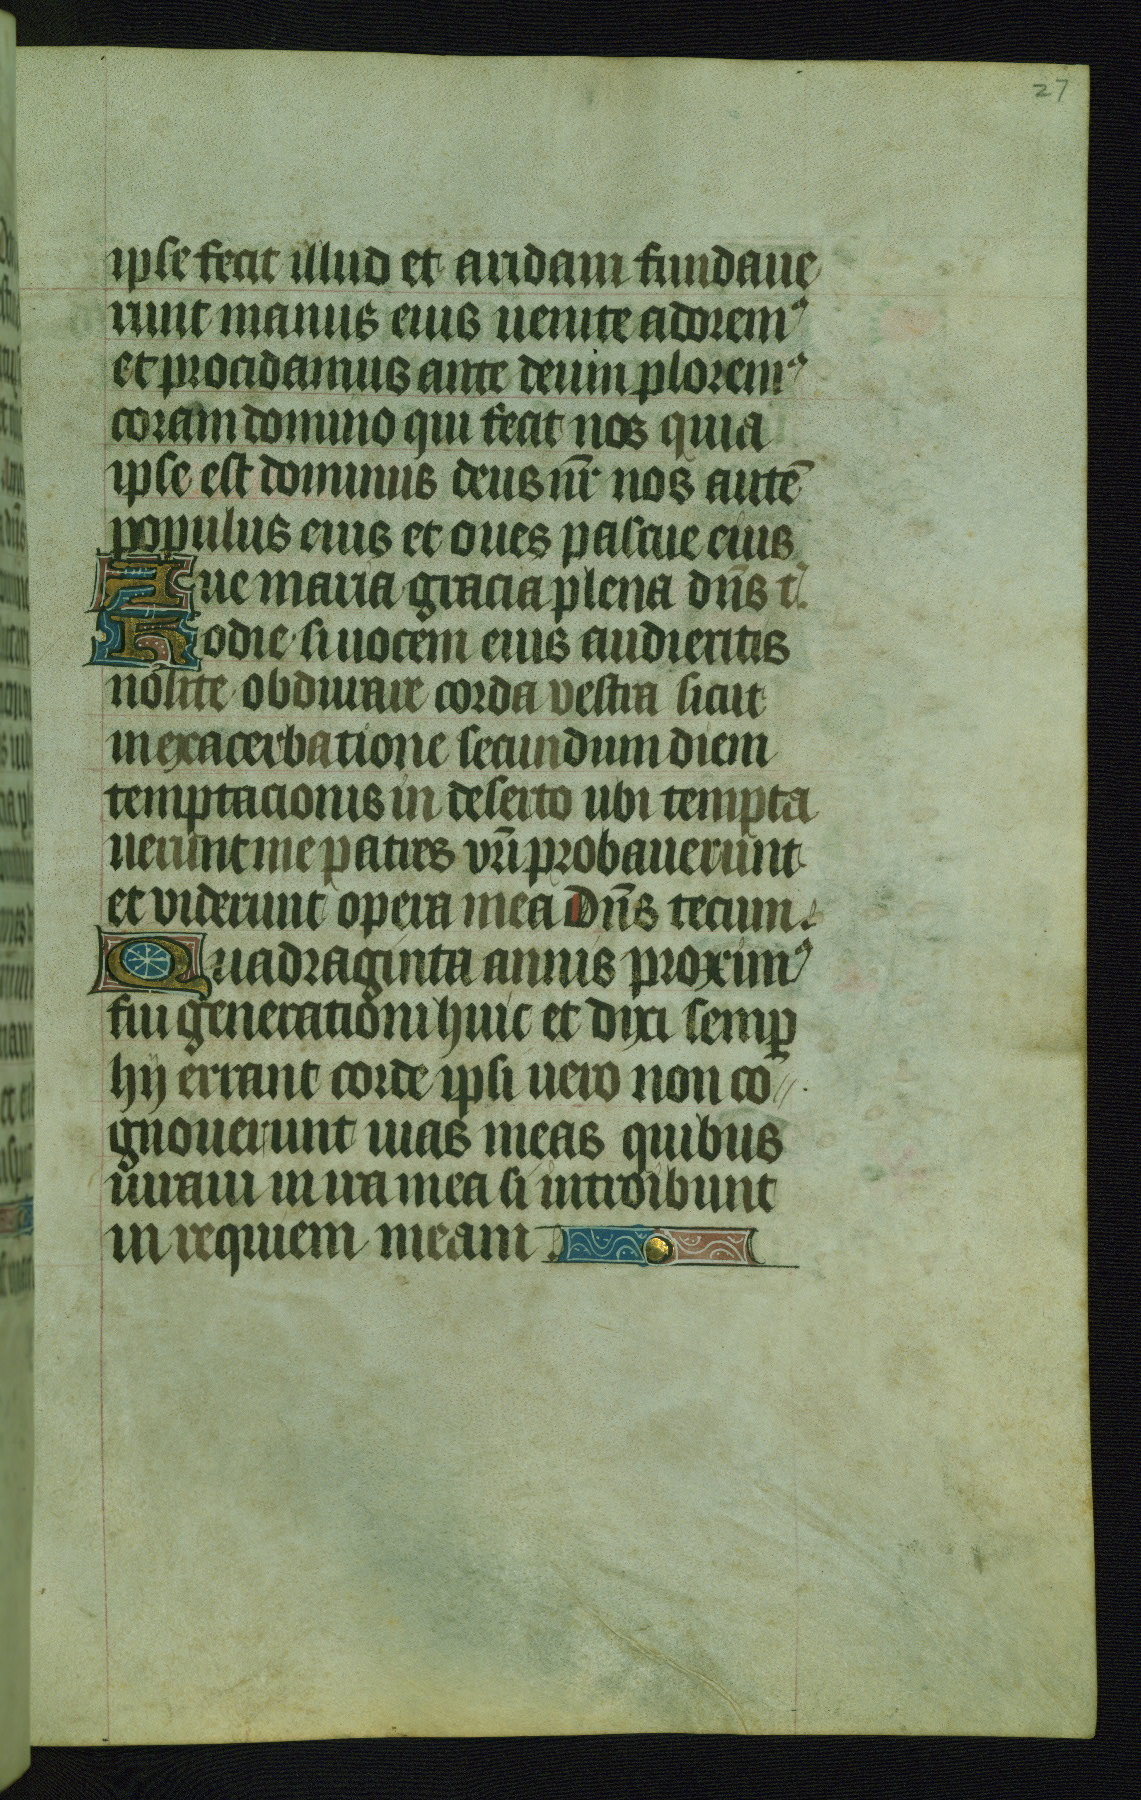 27
ipse fecit illud et aridam fundaue
runt manus eius uenite adoremꝰ
et procidamus ante deum ploremꝰ
coram domino qui fecit nos quia
ipse est dominus deus nr̄ nos autē
populus eius et oues pascue eius
Aue maria gracia plena dn̄s t̄.
Hodie si uocem eius audieritis
nolite obdurare corda vestra sicut
in exacerbatione secundum diem
temptacionis in deserto ubi tempta
uerunt me patres vr̄i probauerunt
et viderunt opera mea Dn̄s tecum.
Quadraginta annis proximꝰ
fui generationi huic et dixi semꝑ
hij errant corde ipsi uero non co//.
gnouerunt uias meas quibus
iuraui in ira mea si introibunt
in requiem meam.